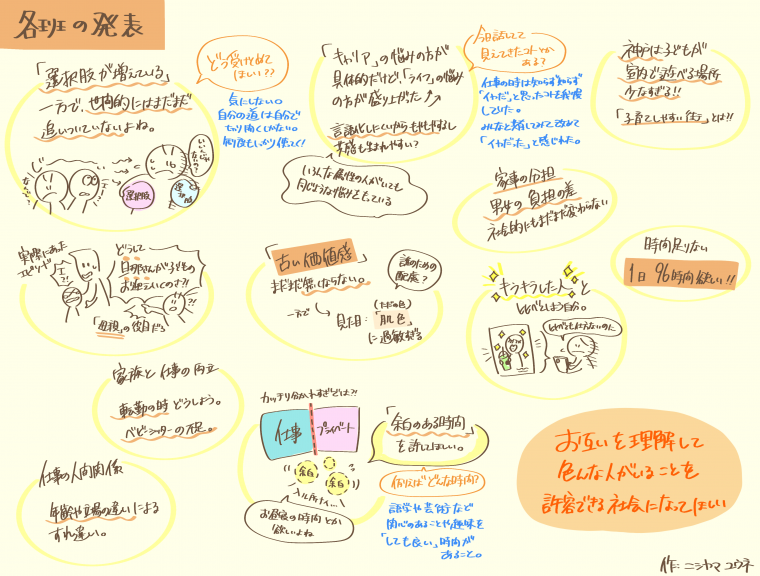 各班の発表
「選択肢が増えている」
一方で、世間的にはまだまだ
追いついていないよね。
じーっ
選択肢
選択肢
どう受け止めて
ほしい??
気にしない。
自分の道は自分で
切り開くしかない。
制度もしっかり使って!
「キャリア」の悩みの方が
具体的だけど、「ライフ」の悩み
の方が盛り上がった
言語化しにくいからもやもやするし
共感も生まれやすい?
いろんな属性の人がいても
同じような悩みをもっている
今日話してて
見えてきたコトとか
ある?
仕事の時は知らず知らず
「イヤだ」と思ったコトも我慢
していた。
みんなと話してみて改めて
「イヤだった」と感じれた。
神戸は子どもが
室内で遊べる場所
少なすぎる!!
「子育てしやすい街」とは?!
家事の分担
男女の負担の差
社会的にもまだまだ変わらない
時間足りない
1日 96時間欲しい!!
実際にあった
エピソード
どうして
旦那さんが子どもの
お迎えにいくのさ?!
「母親」の役目だろ
「古い価値感」
まだまだ無くならない。
一方で
見た目:
(ただの色)
「肌色」
に過敏すぎる
誰のための
配慮?
キラキラした人と
比べてしまう自分。
比べなくてもよいのに
家族と仕事の両立
転勤の時どうしよう。
ベビーシッターの不足。
仕事の人間関係
年齢や立場の違いによる
すれ違い。
カッチリ分かれすぎでは?!
仕事
プライベート
余白
余白
お昼寝の時間とか
欲しいよね
「余白のある時間」
を許してほしい。
例えばどんな時間?
語学や芸術など
関心のあることや趣味を
「しても良い」時間が
あること。
お互いを理解して
色んな人がいることを
許容できる社会になってほしい
作:ニシヤマ ユウネ